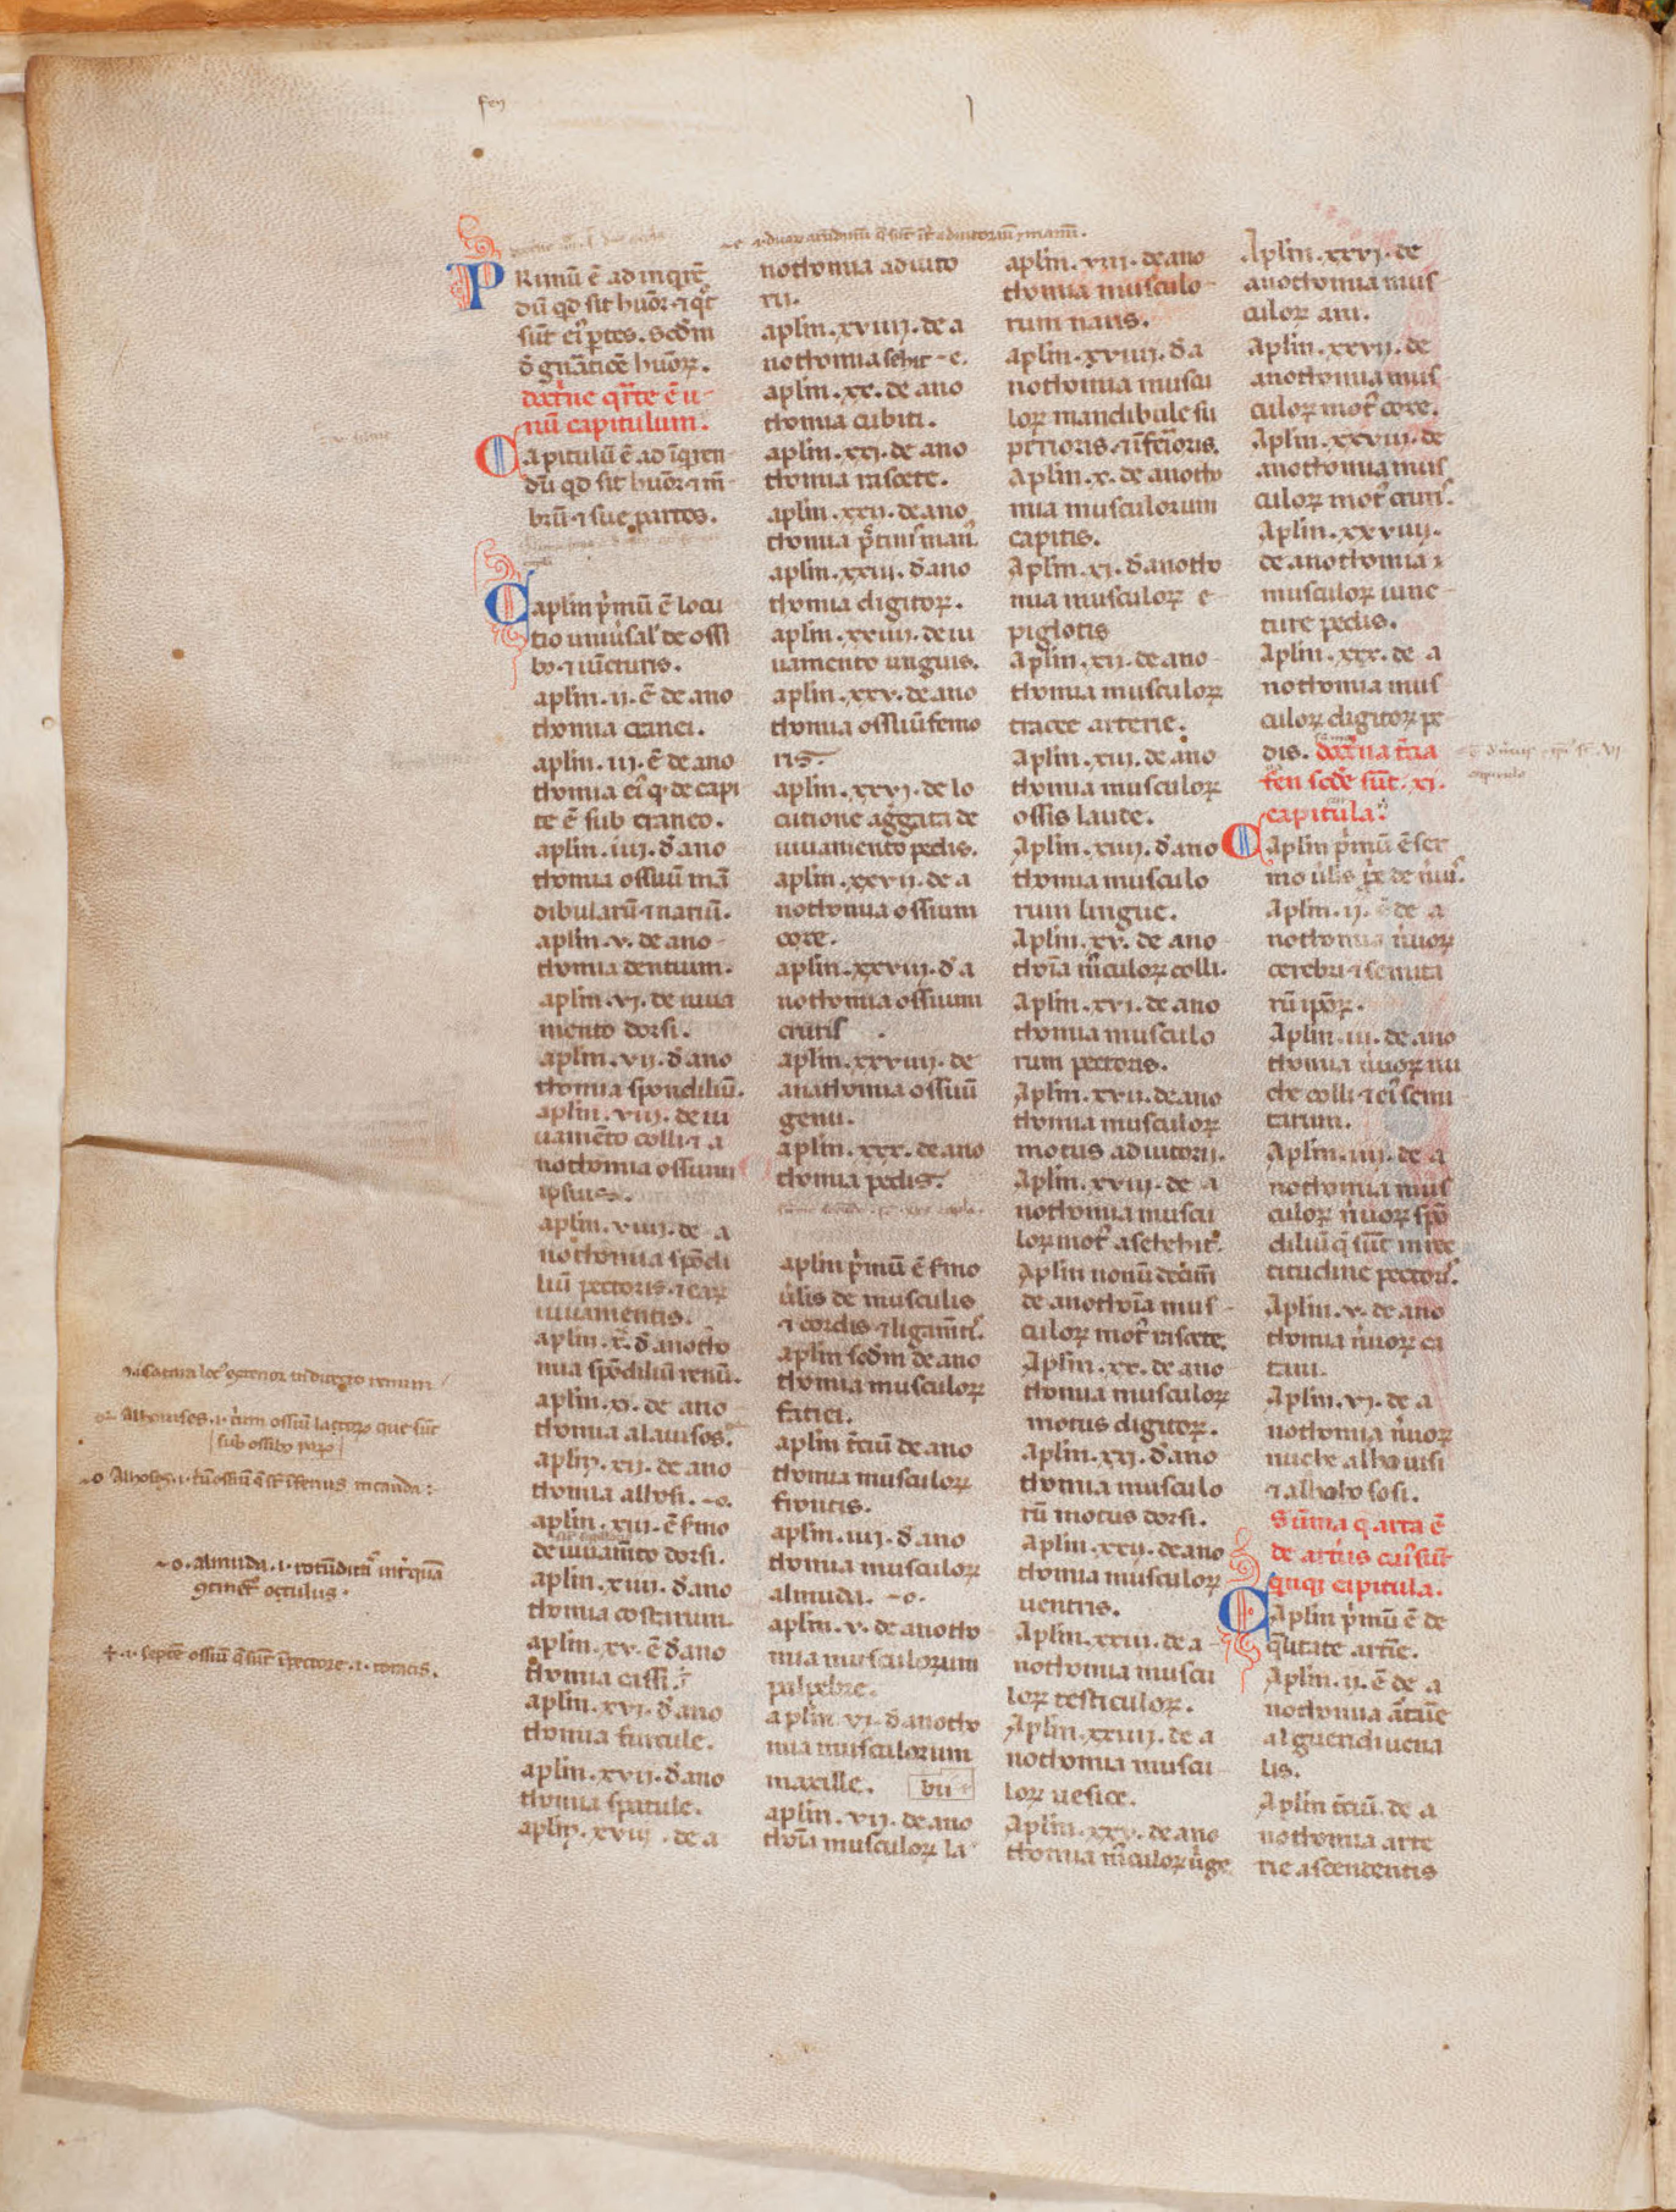 fen
I
PRimū ē ad inqrē
dū qd sit huōꝝ ⁊ qͦt
sūt eiꝰ ptes. Scd'm
đ gn̄atiōe huōꝝ.
doct'ne qr̄te ē u
nū capitulum.
Capitulū ē ad īqren
dū qd sit huōꝝ ⁊ m̄
brū ⁊ sue partes.
Caplm p'mū ē locu
tio uniũsal' de ossi
bꝰ ⁊ iūcturis.
aplm .ii. ē de ano
thomia cranei.
aplm .iij. ē de ano
thomia eiꝰ q̇ de capi
te ē sub craneo.
aplm .iiij. đ ano
thomia ossiuū mā
dibularū ⁊ nariū.
aplm .v. de ano
thomia dentium.
aplm .vj. de iuua
mento dorsi.
aplm .vij. đ ano
thomia spondiliū.
aplm .viij. de iu
uamēto colli ⁊ a
nothomia ossium
ipsius.
aplm .viiij. de a
nothomia spōdi
liū pectoris ⁊ eaꝝ
iuuamentis.
aplm .x. đ anotho
mia spōdiliū renū.
aplm .xi. de ano
thomia alauises.
aplm .xij. de ano
thomia alhosi. ~o.
aplm .xiii. ē s'mo
de iuuam̄to dorsi.
aplm .xiiij. đ ano
thomia costarum.
aplm .xv. ē đ ano
thomia cassi. ⁘
aplm .xvj. đ ano
thomia furcule.
aplm .xvij. đ ano
thomia spatule.
aplm .xviij. de a
.i. duaꝝ arūdinū q̄ sūt īt' adiutoriū ⁊ manū.
nothomia adiuto
rii.
aplm .xviiij. de a
nothomia sehit ~e.
aplm .xx. de ano
thomia cubiti.
aplm .xxj. de ano
thomia rascete.
aplm .xxii. de ano
thomia p̄cinis man'.
aplm .xxiij. đ ano
thomia digitoꝝ.
aplm .xxiiij. de iu
uamento unguis.
aplm .xxv. de ano
thomia ossiuū femo
ris.
aplm .xxvj. de lo
cutione aggata de
iuuamento pedis.
aplm .xxvii. de a
nothomia ossium
coxe.
aplm .xxviij. đ a
nothomia ossium
cruris.
aplm .xxviiij. de
anathomia ossiuū
genu.
aplm .xxx. de ano
thomia pedis.
aplm p'mū ē s'mo
ūlis de musculis
⁊ cordis ⁊ ligam̄tꝭ.
aplm scd'm de ano
thomia musculoꝝ
faciei.
aplm t̄ciū de ano
thomia musculoꝝ
frontis.
aplm .iiij. đ ano
thomia musculoꝝ
almuda. ~o.
aplm .v. de anotho
mia musculorum
palpebre.
aplm .vi. đ anotho
mia musculorum
maxille. bu
aplm .vij. de ano
thoīa musculoꝝ la
aplm .viij. de ano
thomia musculo
rum naris.
aplm .xviiij. đ a
nothomia muscu
loꝝ mandibule su
p̄rioris ⁊ īfe'oris.
Aplm .x. de anotho
mia musculorum
capitis.
Aplm .xj. đ anotho
mia musculoꝝ e
piglotis
Aplm .xij. de ano
thomia musculoꝝ
tracee arterie.
Aplm .xiij. de ano
thomia musculoꝝ
ossis laude.
Aplm .xiiij. đ ano
thomia musculo
rum lingue.
Aplm .xv. de ano
thoīa m̄culoꝝ colli.
Aplm .xvi. de ano
thomia musculo
rum pectoris.
Aplm .xvii. de ano
thomia musculoꝝ
motus adiutorij.
Aplm .xviij. de a
nothomia muscu
loꝝ mot' asehehit.
Aplm nonū decim̄
de anothoīa mus
culoꝝ mot' rascete.
Aplm .xx. de ano
thomia musculoꝝ
motus digitoꝝ.
Aplm .xxj. đ ano
thomia musculo
rū motus dorsi.
Aplm .xxij. de ano
thomia musculoꝝ
uentris.
Aplm .xxiii. de a
nothomia muscu
loꝝ testiculoꝝ.
Aplm .xxiiij. de a
nothomia muscu
loꝝ uesice.
Aplm .xxv. de ano
thomia m̄culoꝝ ũge
Aplm .xxvj. de
anothomia mus
culoꝝ ani.
Aplm .xxvii. de
anothomia mus
culoꝝ mot' coxe.
Aplm .xxviii. de
anothomia mus
culoꝝ mot' crurꝭ.
Aplm .xxviiij.
de anothomia
musculoꝝ iunc
ture pedis.
Aplm .xxx. de a
nothomia mus
culoꝝ digitoꝝ pe
dis. doct'na t̄cia
fen scđe sūt .xj.
capitula.
Caplm p'mū ē ser
mo ūlis pͥe de nuĩs.
Aplm .ij. ē de a
nothomia nũoꝝ
cerebri ⁊ semita
rū ipōꝝ.
Aplm .iii. de ano
thomia nũoꝝ nu
che colli ⁊ eiꝰ semi
tarum.
Aplm .iiij. de a
nothomia mus
culoꝝ nũoꝝ spō
diliū q̄ sūt in rec
titudine pectorꝭ.
Aplm .v. de ano
thomia nũoꝝ ca
tan.
Aplm .vj. de a
nothomia nũoꝝ
nuche alhauisi
⁊ alhohosi.
Sūma q arta ē
de art'iis cuiꝰ sūt
quiqꝫ cipitula.
Caplm p'mū ē de
q̄litate art'ie.
Aplm .ij. ē de a
nothomia
al guendi uena
lis.
Aplm t̄ciū. de a
nothomia arte
rie ascendentis
~o. almuda .i. rotūditaꝭ int' quā
ꝯtinet' occulus.
+ .i. septē ossiū q̄ sūt ī pectore .i. toracis.